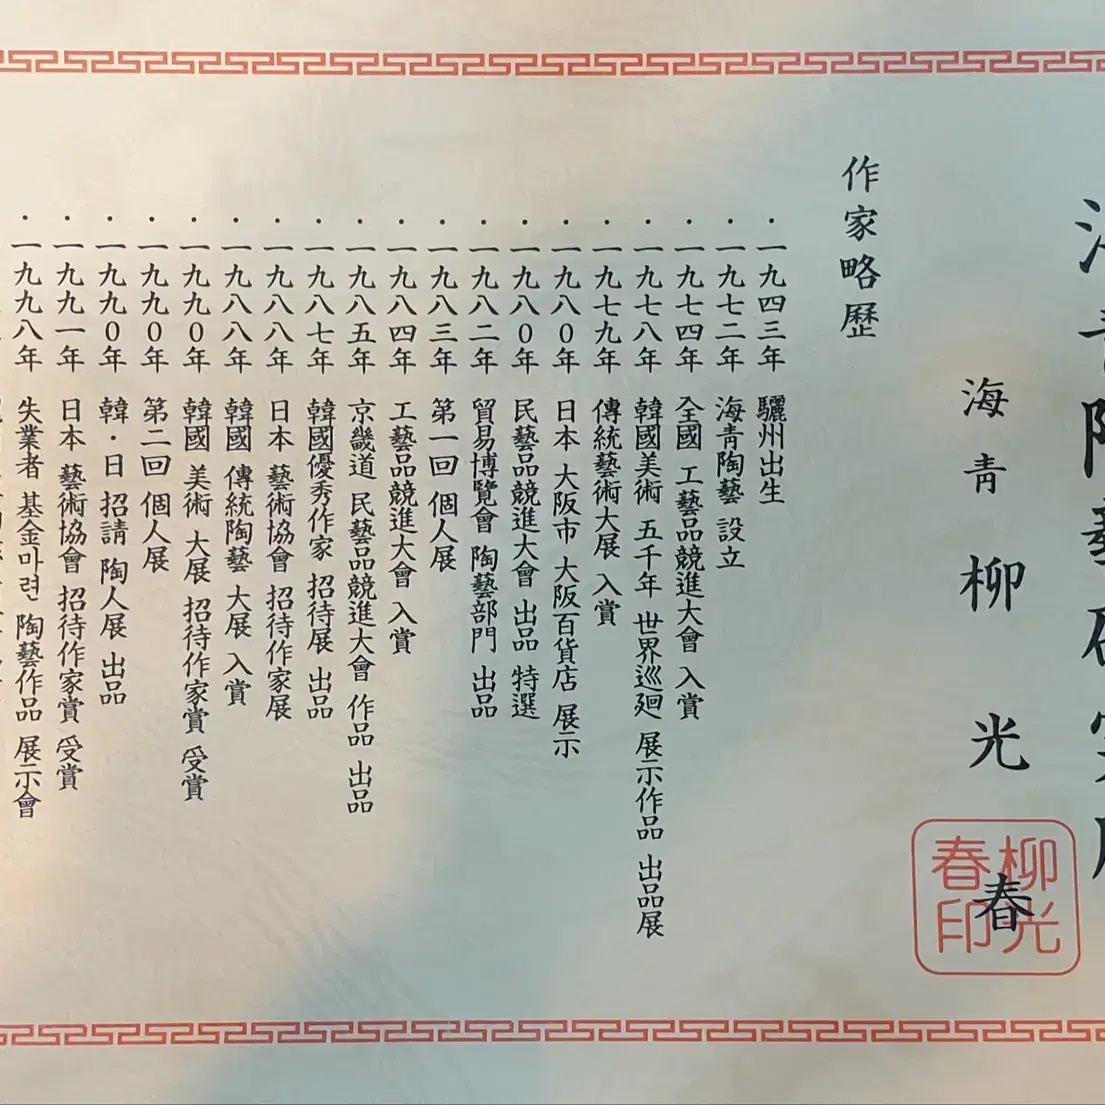 海青 柳光春
柳光春印
作家略歷
・一九四三年 驪州出生
・一九七二年 海靑陶藝 設立
・一九七四年 全國 工藝品競進大會 入賞
・一九七八年 韓國美術 五千年 世界巡廻 展示作品 出品展
・一九七九年 傳統藝術大展 入賞
・一九八0年 日本 大阪市 大阪百貨店 展示
・一九八0年 民藝品競進大會 出品 特選
・一九八二年 貿易博覽會 陶藝部門 出品
・一九八三年 第一回 個人展
・一九八四年 工藝品競進大會 入賞
・一九八五年 京畿道 民藝品競進大會 作品 出品
・一九八七年 韓國優秀作家 招待展 出品
・一九八八年 日本 藝術協會 招待作家展
・一九八八年 韓國 傳統陶藝 大展 入賞
・一九九0年 韓國 美術 大展 招待作家賞 受賞
・一九九0年 第二回 個人展
・一九九0年 韓・日 招請 陶人展 出品
・一九九一年 日本 藝術協會 招待作家賞 受賞
・一九九八年 失業者 基金마련 陶藝作品 展示會